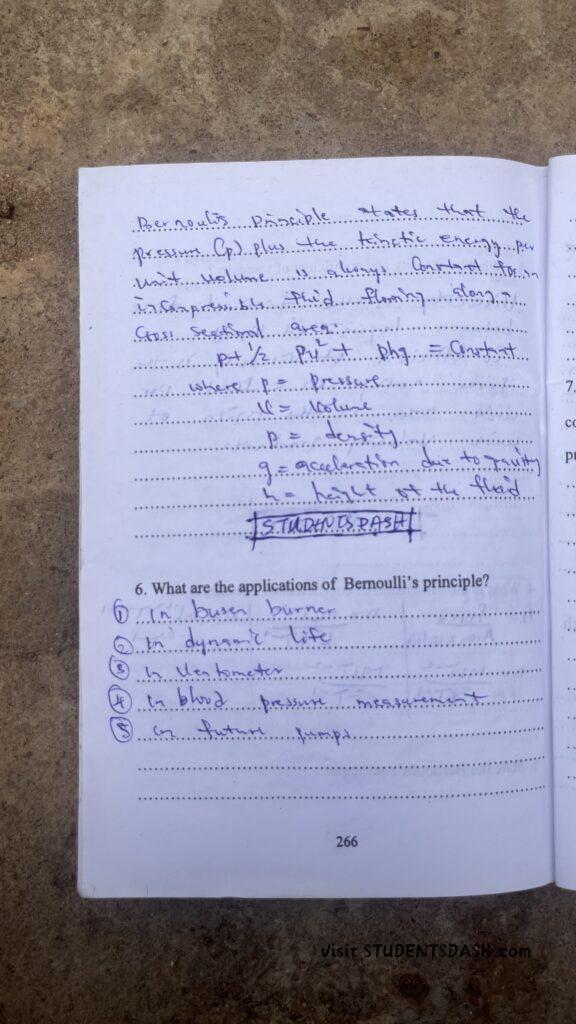 Bernoulis principle states that the
pressure (p) plus the kinetic energy per
unit volume is always Constant for an
incompressible fluid flowing along a
Cross sectional area:
p+ 1/2 pv² + phg = Constant
where p = pressure
v = volume
p = density
g = acceleration due to gravity
h = height of the fluid
STUDENTSDASH
6. What are the applications of Bernoulli's principle?
① in busen burner
② in dynamic life
③ in Venturometer
④ in blood pressure measurement
⑤ in future pumps
266
7.
co
pr
Visit STUDENTSDASH.com